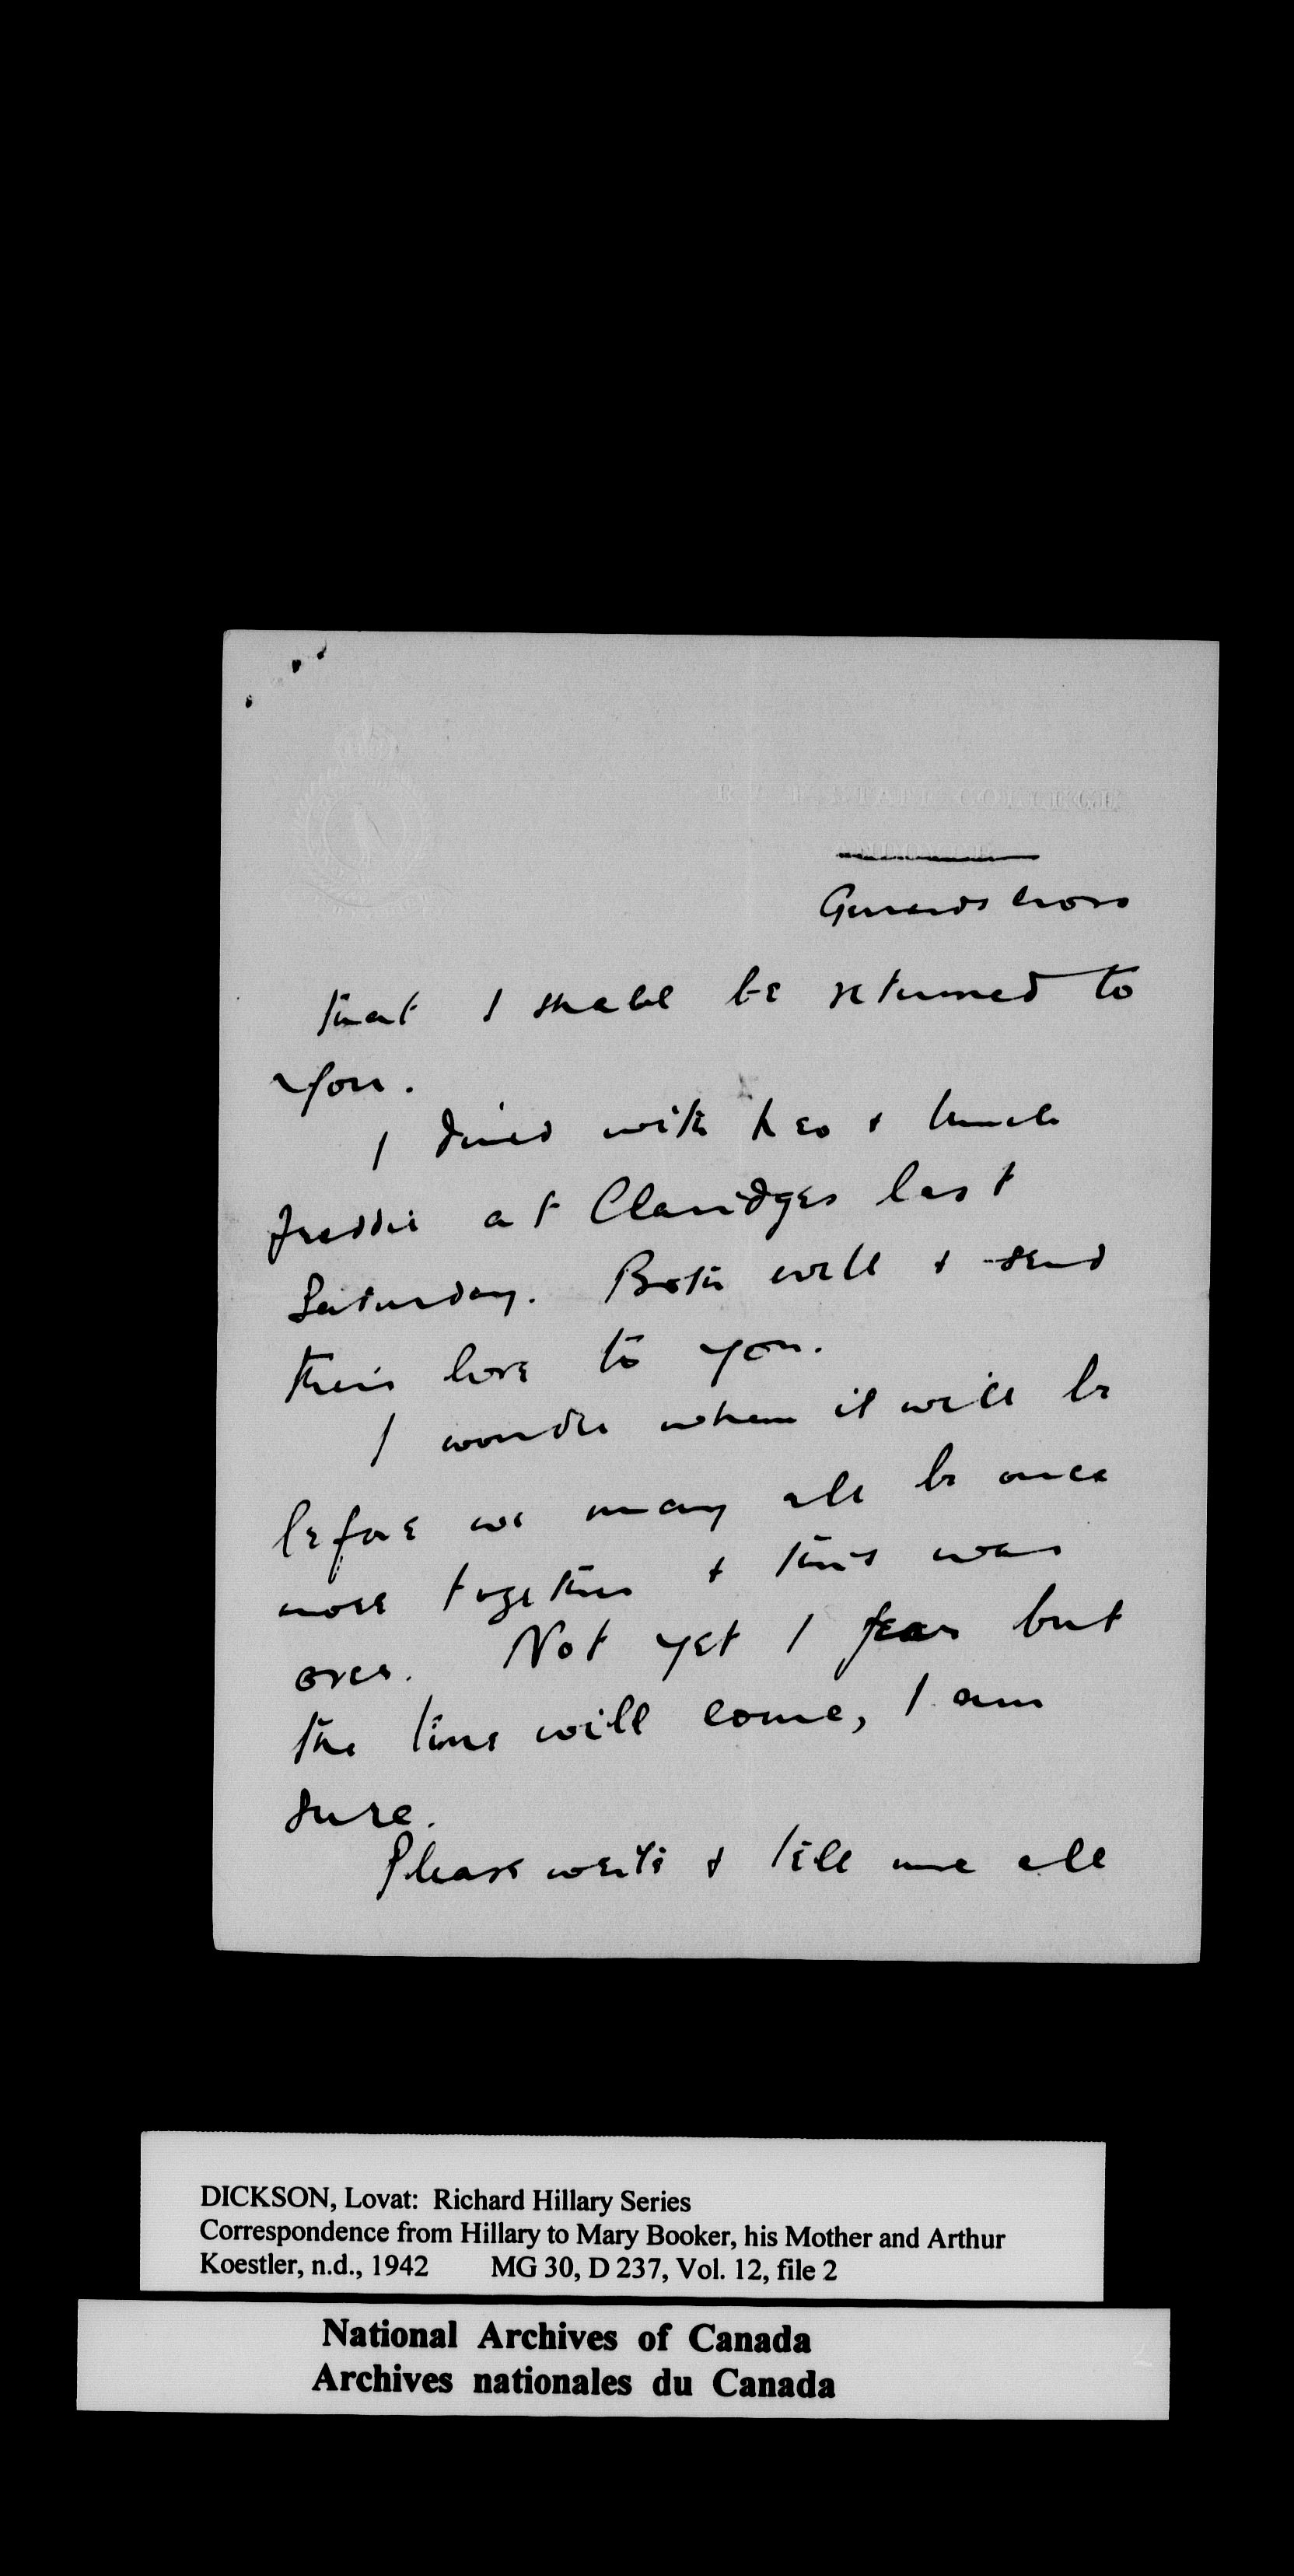 R.A.F. STAFF COLLEGE
ANDOVER
Gerrards Cross
that I shall be returned to
you.
I dined with Leo & Uncle
Freddie at Claridges last
Saturday. Both well & send
their love to you.
I wonder when it will be
before we may all be once
more together & this war
over. Not yet I fear but
the time will come, I am
sure.
Please write & tell me all
DICKSON, Lovat: Richard Hillary Series
Correspondence from Hillary to Mary Booker, his Mother and Arthur
Koestler, n.d., 1942 MG 30, D 237, Vol. 12, file 2
National Archives of Canada
Archives nationales du Canada